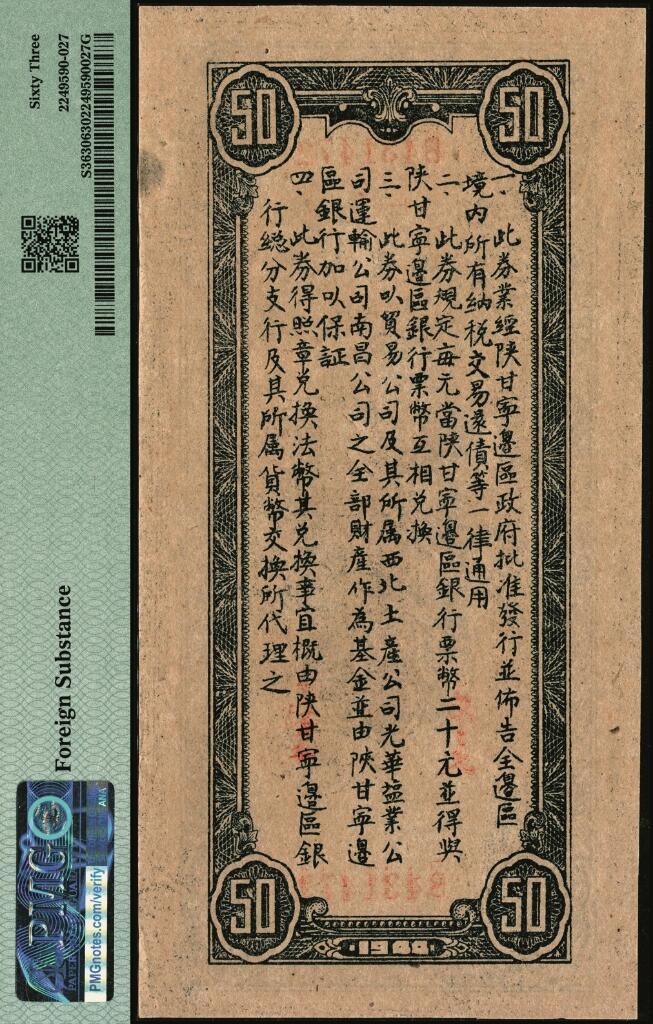 Sixty Three
2249590-027
S3630630224959 0027G
Foreign Substance
PMG
ANA
PMGnotes.com/verify
50
50
一、此券業經陝甘寧邊區政府批准發行並佈告全邊區
境內所有納稅交易還債等一律通用
二、此券規定每元當陝甘寧邊區銀行票幣二十元並得與
陝甘寧邊區銀行票幣互相兌換
三、此券以貿易公司及其所属西北土產公司光華鹽業公
司運輸公司南昌公司之全部財產作為基金並由陝甘寧邊
區銀行加以保証
四、此券得照章兌換法幣其兌換事宜概由陝甘寧邊區銀
行總分支行及其所属貨幣交換所代理之
50
50